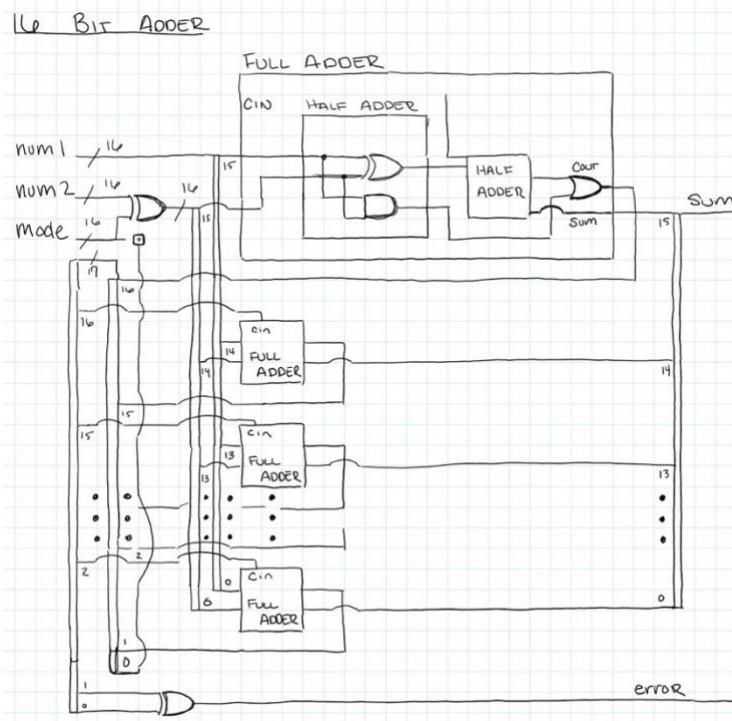 16 BIT ADDER
FULL ADDER
CIN HALF ADDER
num1 16
15
num2 16 16
15
mode 16
HALF ADDER
Cout
Sum
Sum
15
17
16
16
cin
14 FULL ADDER
14
14
15
15
cin
13 FULL ADDER
13
13
2
2
cin
0
0 FULL ADDER
0
1
0
1
0
error